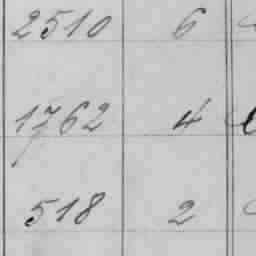 2510 6
1762 4
518 2